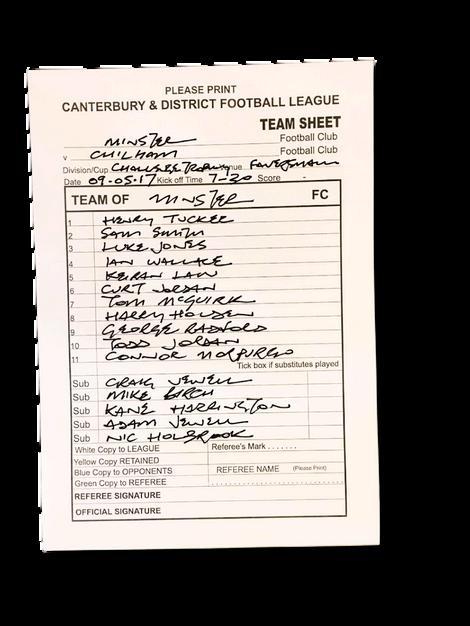 PLEASE PRINT
CANTERBURY & DISTRICT FOOTBALL LEAGUE
TEAM SHEET
MINSTER Football Club
v CHILHAM Football Club
Division/Cup CHALLENGE TROPHY Venue FAVERSHAM
Date 09-05-17 Kick off Time 7-30 Score -
TEAM OF MINSTER FC
1 HENRY TUCKER
2 SAM SMITH
3 LUKE JONES
4 IAN WALLACE
5 KEIRAN LAW
6 CURT JORDAN
7 TOM McGUIRK
8 HARRY HOLDEN
9 GEORGE RADFORD
10 TODD JORDAN
11 CONNOR MORPURGO
Tick box if substitutes played
Sub CRAIG JEWELL
Sub MIKE BIRCH
Sub KANE HARRINGTON
Sub ADAM JEWELL
Sub NIC HOLBROOK
White Copy to LEAGUE Referee's Mark .......
Yellow Copy RETAINED
Blue Copy to OPPONENTS REFEREE NAME (Please Print)
Green Copy to REFEREE
REFEREE SIGNATURE
OFFICIAL SIGNATURE